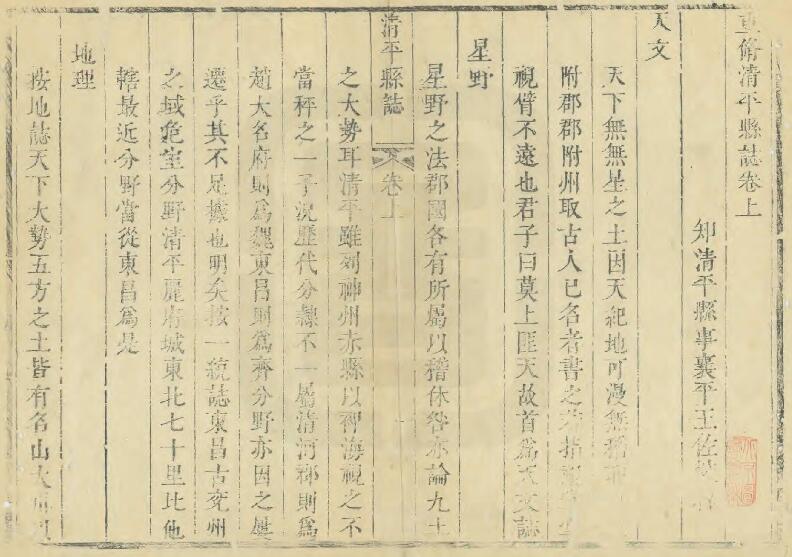 重脩清平縣誌卷上
知清平縣事襄平王佐
天文
天下無無星之土因天紀地可漫無稽
附郡郡附州取古人已名者書之若指
視臂不遠也君子曰莫上匪天故首爲天文誌
星野
星野之法郡國各有所屬以稽休咎亦論九土
清平縣誌 卷上
之大勢耳清平雖列神州赤縣以裨海視之不
當稊之一子況歷代分隸不一屬清河郡則爲
趙大名府則爲魏東昌則爲齊分野亦因之屢
遷乎其不足據也明矣按一統誌東昌古兗州
之域危室分野清平麗府城東北七十里比他
轄最近分野當從東昌爲是
地理
按地誌天下大勢五方之土皆有名山大